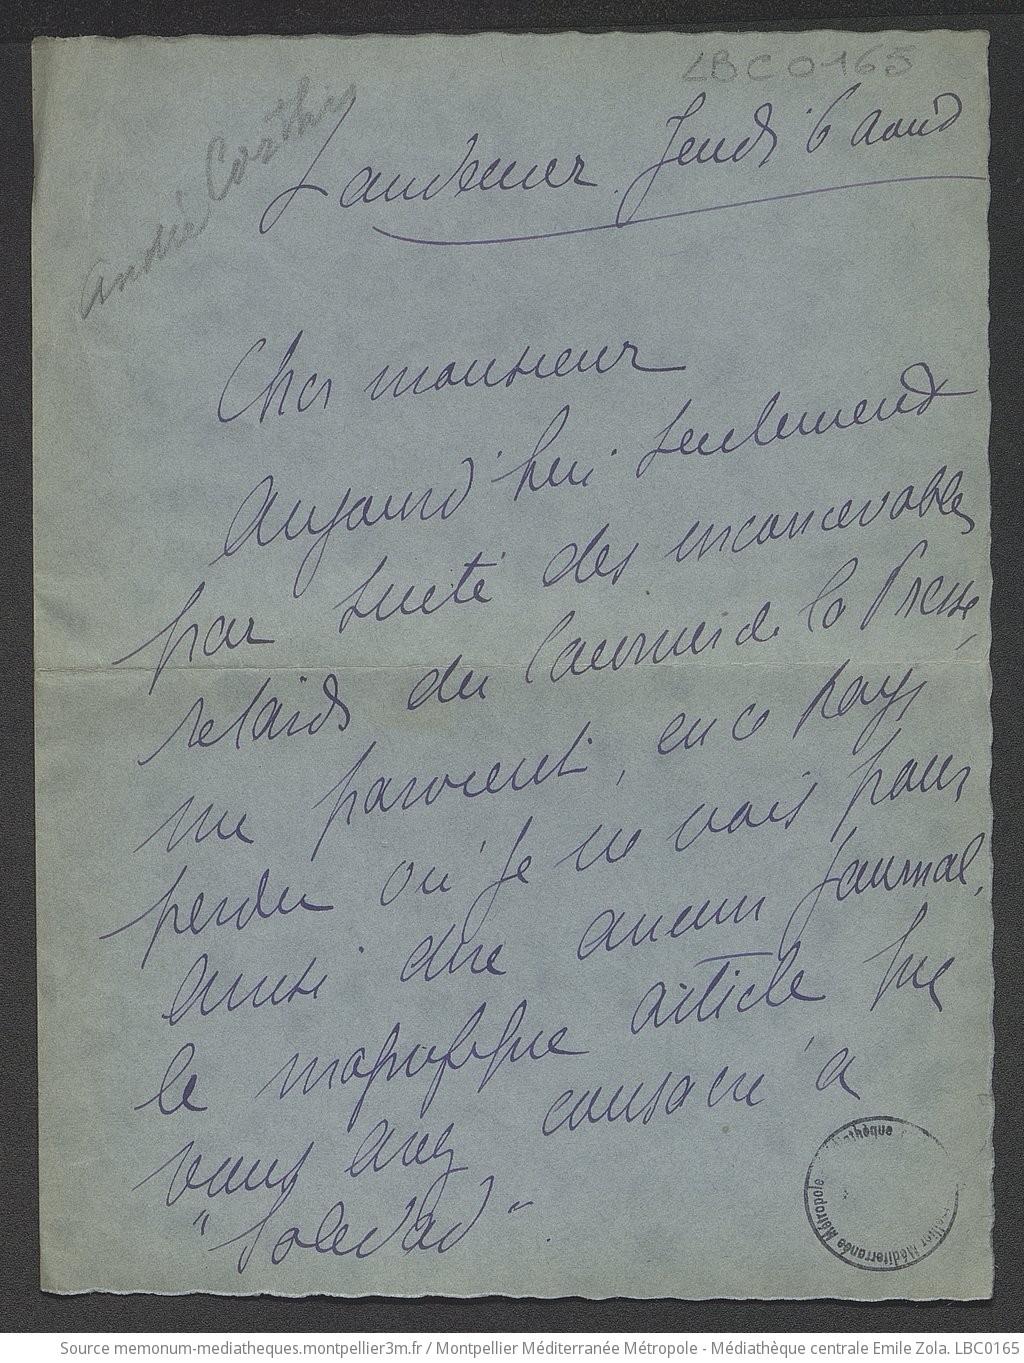 LBC0165
André Corthis
Landemer. Jeudi 6 Août
Cher monsieur
Aujourd'hui seulement
par suite des inconcevables
retards du Courrier de la Presse,
me parvient, en ce pays
perdu où je ne vois pour
ainsi dire aucun journal,
le magnifique article que
vous avez consacré à
"Soledad".
Médiathèque
Montpellier Méditerranée Métropole
Source memonum-mediatheques.montpellier3m.fr / Montpellier Méditerranée Métropole - Médiathèque centrale Emile Zola. LBC0165